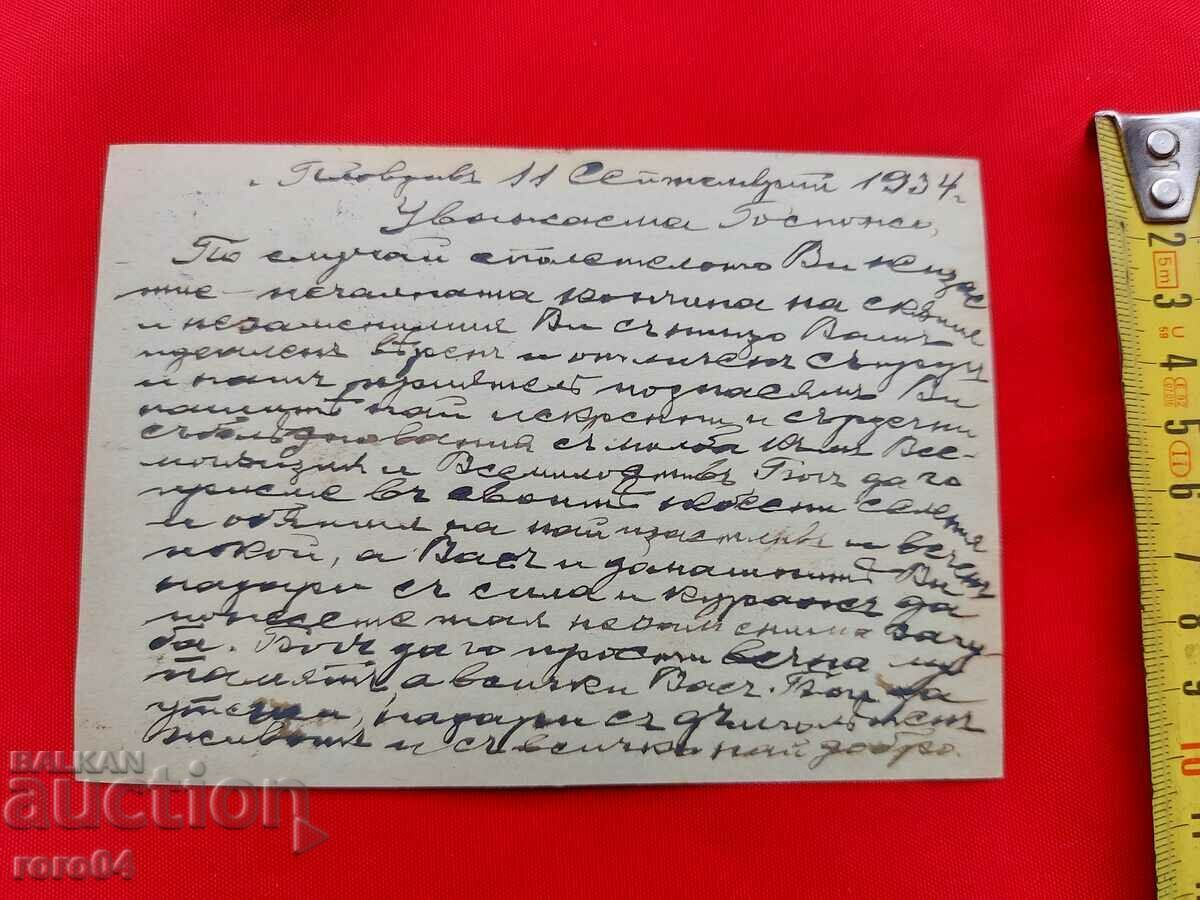 Пловдивъ 11 Септемврий 1934 г
Уважаема Госпожо,
По случай сполетелото Ви нещас
тие печалната кончина на скъпия
и незаменимия Ви съпруг Вашъ
идеаленъ вѣренъ и отличенъ съпругъ
и нашъ приятель поднасямъ Ви
нашитѣ най искренни и сърдечни
съболѣзнования съ молба къмъ Все-
и Всемилостивъ Богъ да го
приеме въ своитѣ небесни селения
и обятия на най щастливъ и веченъ
покой, а Васъ и домашнитѣ Ви
надари съ сила и куражъ да
понесете тая незаменима загу-
ба. Богъ да го прости вечна му
паметь, а всички Васъ. Богъ да
утеши, надари съ дълголѣтенъ
животъ и съ всичко най добро.
BALKAN
auction
roro04
2
5m
3
4
5
II
6
7
8
9
10
11